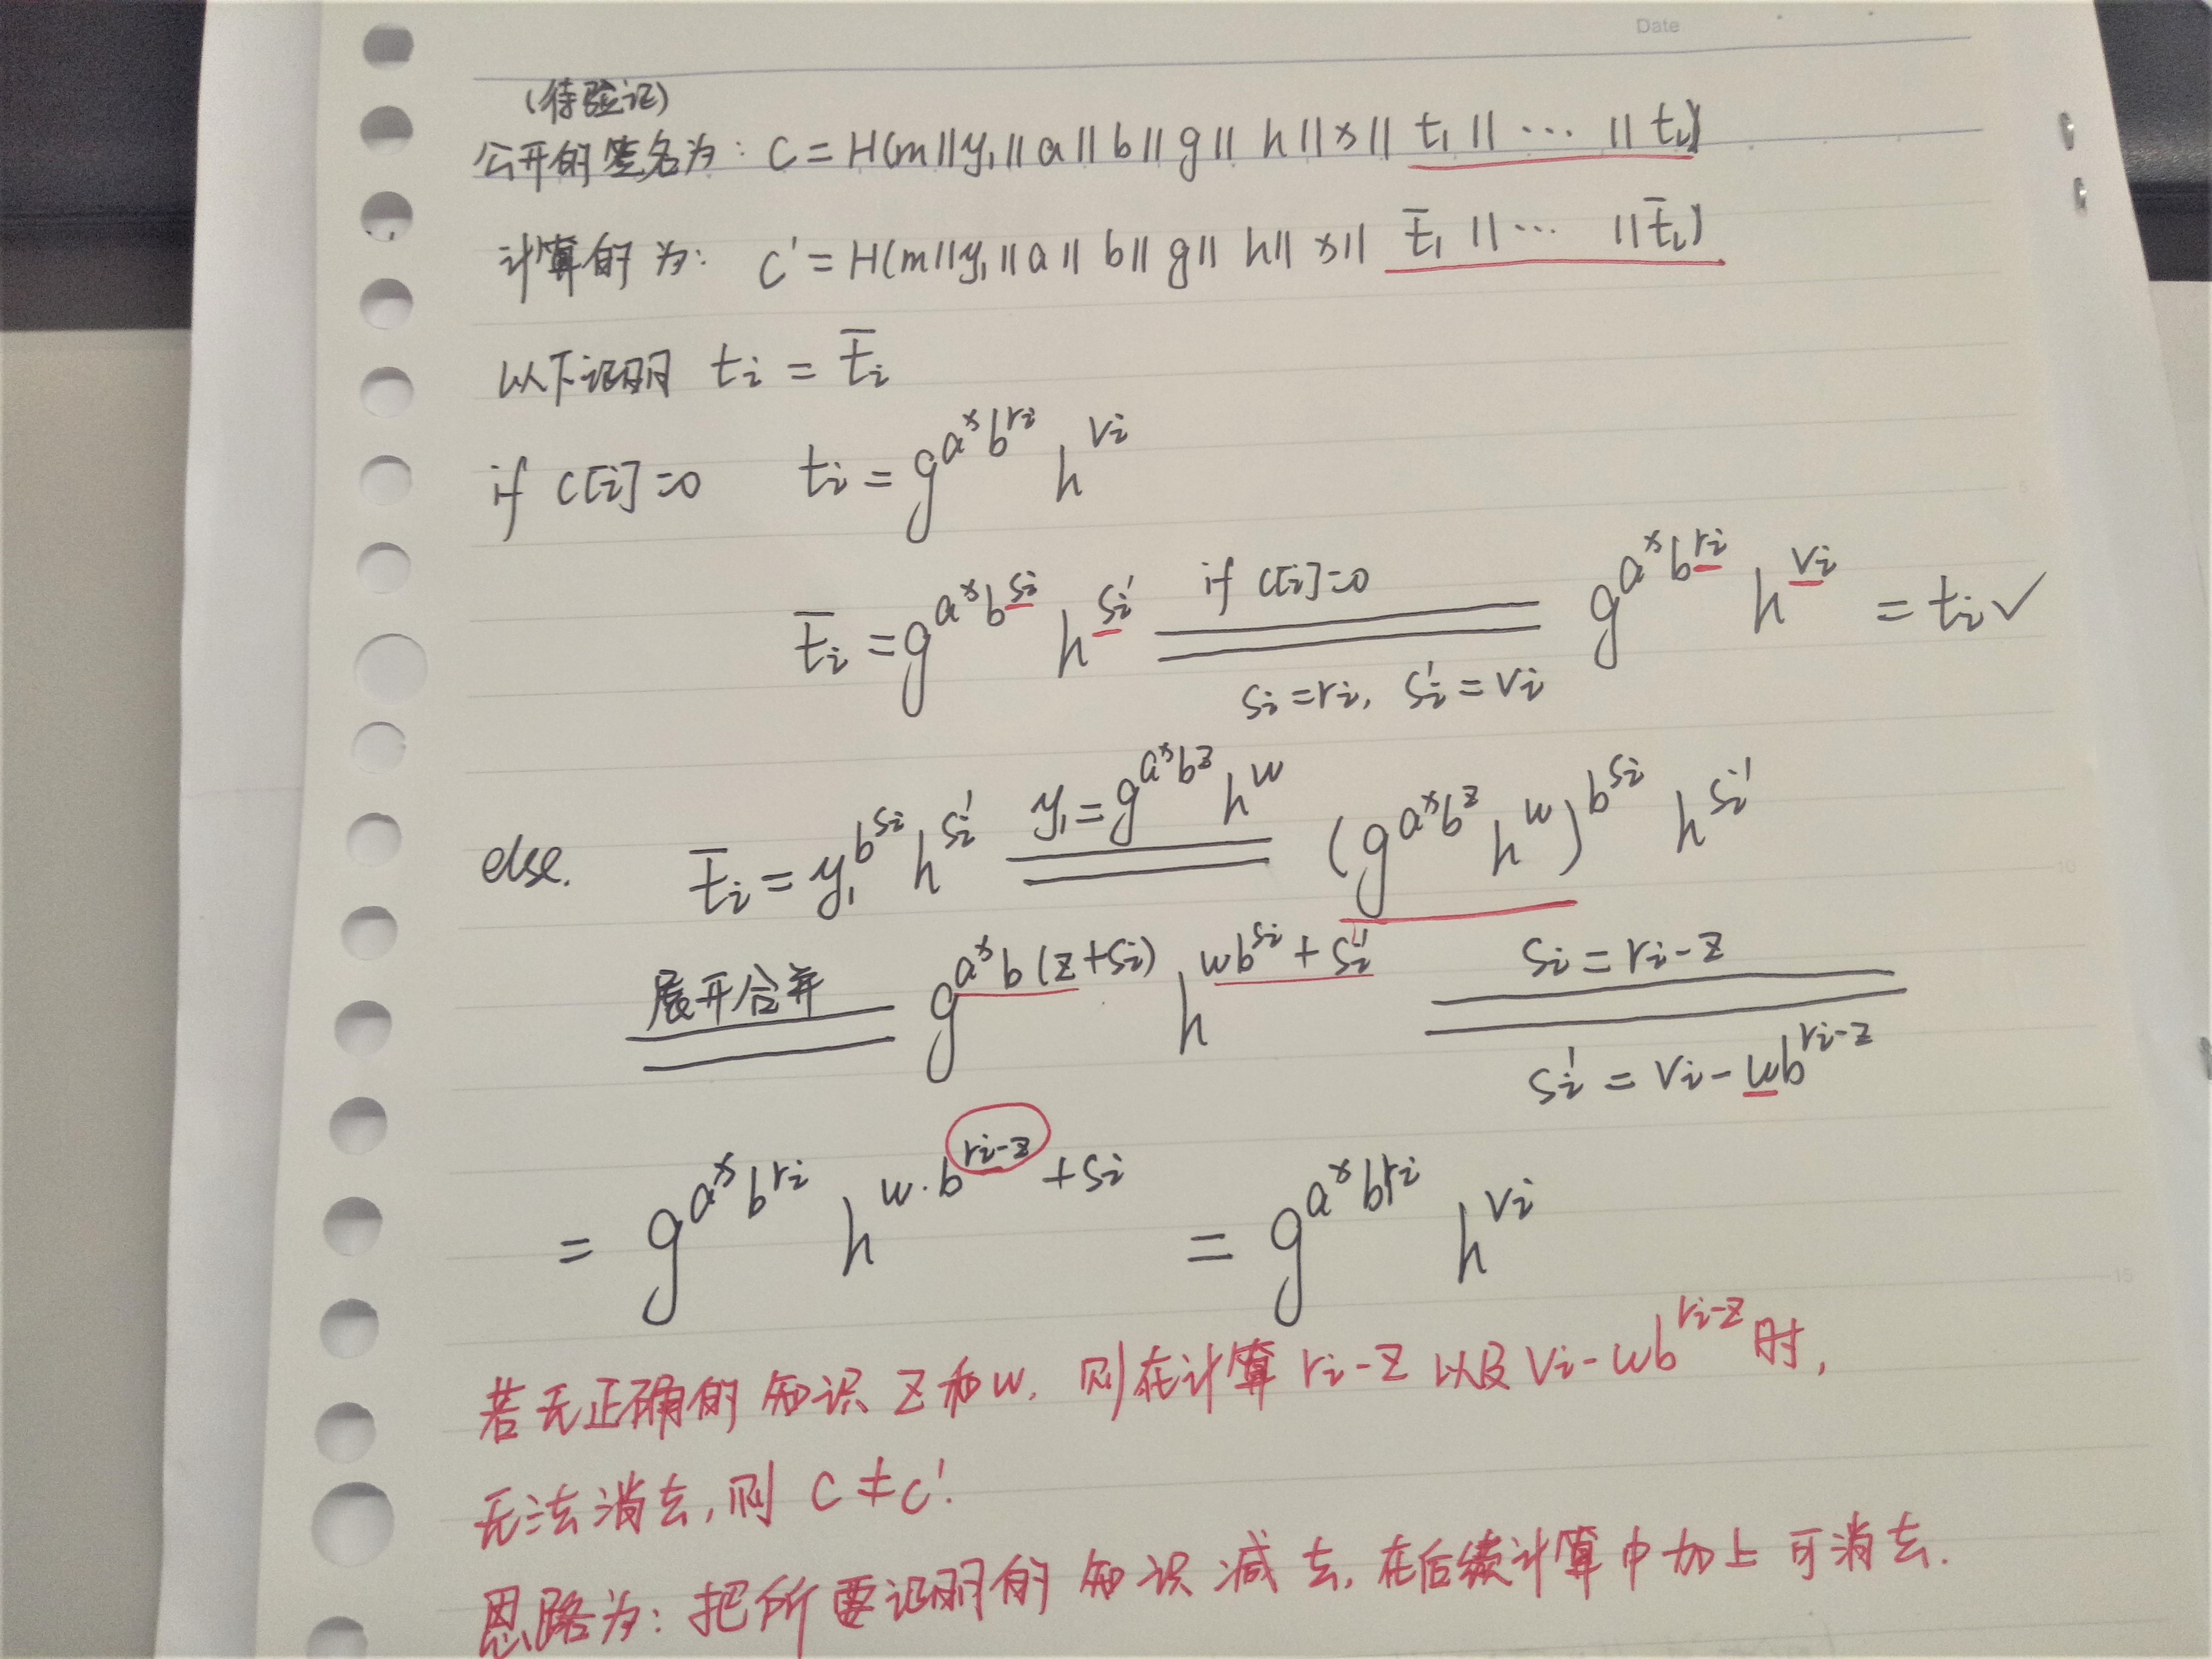 Date
(待验证)
公开的签名为: C = H(m||y₁||a||b||g||h||x||t₁||⋯||tᵢ)
计算的为: C' = H(m||y₁||a||b||g||h||x||t̄₁||⋯||t̄ᵢ)
以下证明 tᵢ = t̄ᵢ
if C[i]=0 tᵢ = g^{a^x b^{rᵢ}} h^{vᵢ}
t̄ᵢ = g^{a^x b^{sᵢ}} h^{sᵢ'} if C[i]=0 g^{a^x b^{rᵢ}} h^{vᵢ} = tᵢ ✓
sᵢ=rᵢ, sᵢ'=vᵢ
else. t̄ᵢ = y₁^{b^{sᵢ}} h^{sᵢ'} y₁=g^{a^x b^z} h^w (g^{a^x b^z} h^w)^{b^{sᵢ}} h^{sᵢ'}
展开合并 g^{a^x b(z+sᵢ)} h^{wb^{sᵢ}+sᵢ'} sᵢ=rᵢ-z
sᵢ' = vᵢ-wb^{rᵢ-z}
= g^{a^x b^{rᵢ}} h^{w·b^{rᵢ-z}+sᵢ} = g^{a^x b^{rᵢ}} h^{vᵢ}
若无正确的知识 z和w, 则在计算 rᵢ-z 以及 vᵢ-wb^{rᵢ-z} 时,
无法消去, 则 C≠C'.
思路为: 把所要证明的知识减去, 在后续计算中加上可消去.
5
10
15